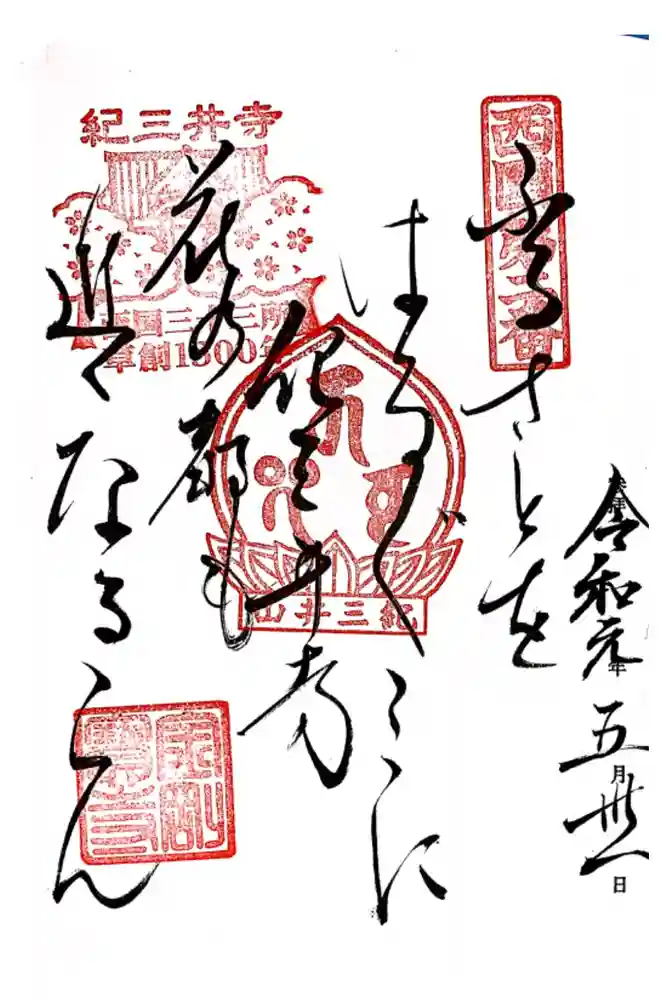 西国第二番
奉拝
令和元年
五月卅一日
ふるさとを
はる〴〵こゝに
紀三井寺
花の都も
近くなるらん
紀三井寺
西国三十三所
草創1300年
紀三井山
金剛
寳寺